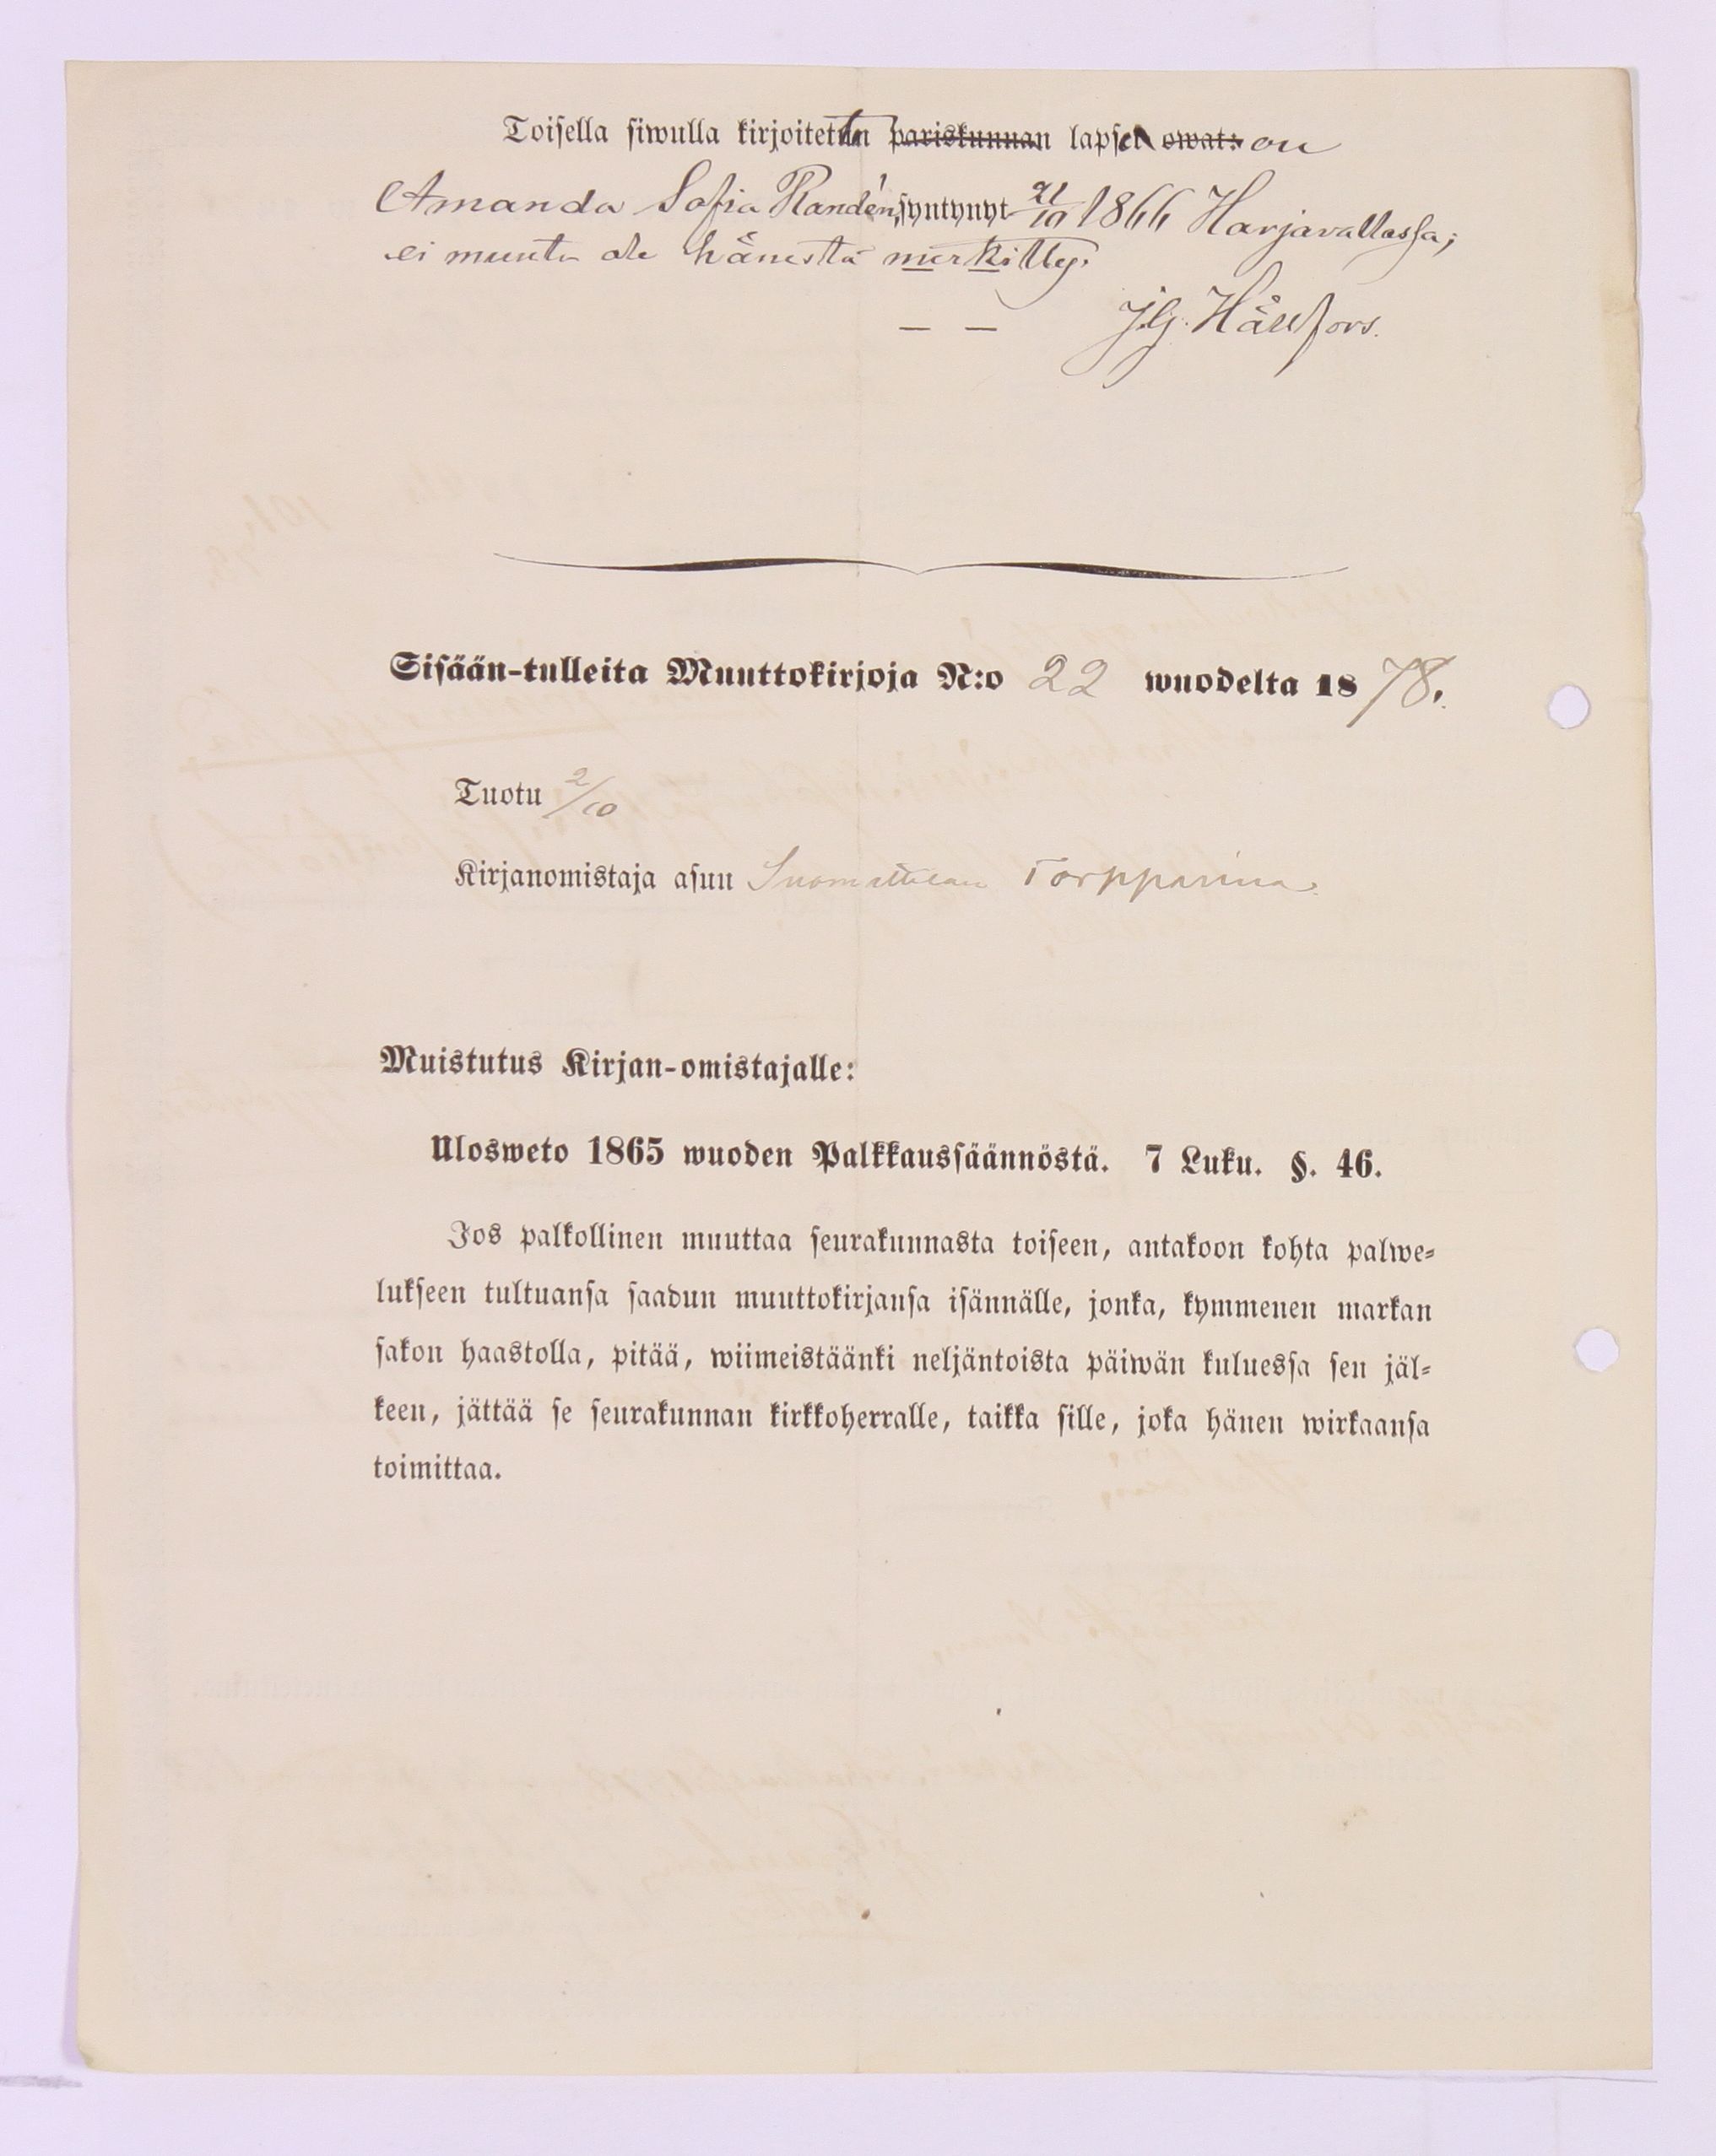 Toisella siwulla kirjoitetun pariskunnan lapsen owat: on
Amanda Sofia Randén, syntynyt 21/10 1866 Harjavallassa;
ei muuta ole hänestä merkitty.
J.G. Hällfors.
Sisään-tulleita Muuttokirjoja N:o 22 wuodelta 1878.
Tuotu 2/10
Kirjanomistaja asuu Torpparina.
Muistutus Kirjan-omistajalle:
Ulosweto 1865 wuoden Palkkaussäännöstä. 7 Luku. §. 46.
Jos palkollinen muuttaa seurakunnasta toiseen, antakoon kohta palwe-
lukseen tultuansa saadun muuttokirjansa isännälle, jonka, kymmenen markan
sakon haastolla, pitää, wiimeistäänki neljäntoista päiwän kuluessa sen jäl-
keen, jättää se seurakunnan kirkkoherralle, taikka sille, joka hänen wirkaansa
toimittaa.